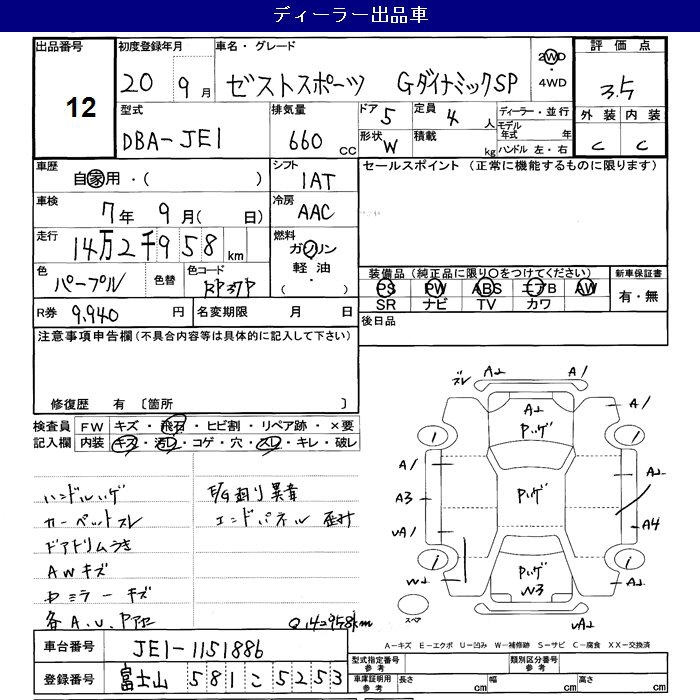 ディーラー出品車
出品番号 12
初度登録年月 20 9月
車名・グレード ゼストスポーツ GダイナミックSP
2WD ・ 4WD
評価点 3.5
外装 内装
C C
型式 DBA-JE1
排気量 660 cc
ドア 5 定員 4 人
形状 W 積載 kg
ディーラー・並行
モデル年式 年
ハンドル 左・右
車歴 自家用・( )
シフト 1AT
セールスポイント (正常に機能するものに限ります)
車検 7年 9月( 日)
冷房 AAC
走行 14万2千958km
燃料 ガソリン 軽油 ・( )
色 パープル 色替 色コード RP37P
装備品(純正品に限り○をつけてください) 新車保証書
PS PW ABS エアB AW
SR ナビ TV カワ
有・無
R券 9,940 円 名変期限 月 日
後日品
注意事項申告欄(不具合内容等は具体的に記入して下さい)
修復歴 有 [箇所 ]
検査員記入欄 FW キズ・飛石・ヒビ割・リペア跡・×要
内装 キズ・汚レ・コゲ・穴・スレ・キレ・破レ
ハンドルハゲ
カーペットスレ
ドアトリムうき
AWキズ
ドミラーキズ
各A.U.
E/G廻り異音
エンドパネル
142958km
ズレ A2 A1
A2 Pハゲ
A1
1 1
A1 A2
A3 Pハゲ
A4
UA1
1 1
W2 A2
Pハゲ W3
スペア UA2
A-キズ E-エクボ U-凹み W-補修跡 S-サビ C-腐食 XX-交換済
車台番号 JE1-1151886
登録番号 富士山 581 こ 5253
型式指定番号 参考 類別区分番号 参考
車庫証明用 参考 長さ cm 幅 cm 高さ cm